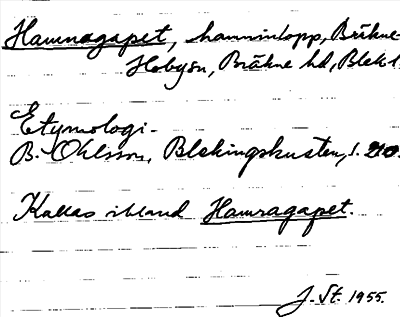 Hamnagapet, hamninlopp, Bräkne-
Hobysn, Bräkne hd, Blek l.
Etymologi.
B. Ohlsson, Blekingskusten, s. 210.
Kallas ibland Hamragapet.
J. St. 1955.